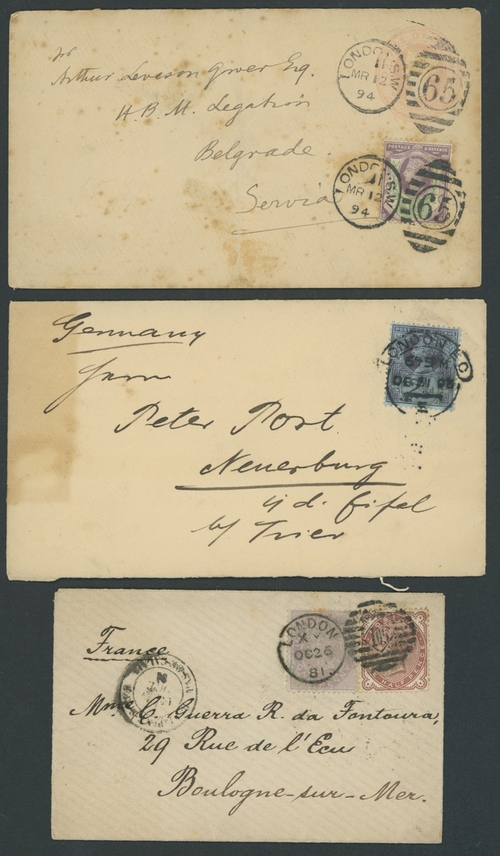 Arthur Leveson Gower Esq.
H.B.M. Legation
Belgrade.
Servia
LONDON.S.W
MR 12
94
65
POSTAGE & REVENUE
LONDON.S.W
MR 12
94
65
Germany
Herrn
Peter Port
Neuerburg
i/d. Eifel
b/ Trier
LONDON
France
LONDON
X
OC 26
81
Mme C. Guerra R. da Fontoura,
29 Rue de l'Ecu
Boulogne-sur-Mer.